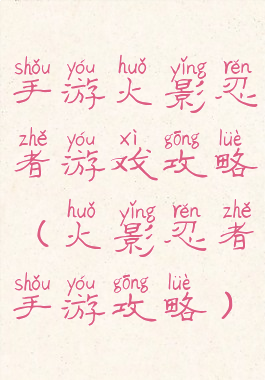 shǒu yóu huǒ yǐng rěn
手游火影忍
zhě yóu xì gōng lüè
者游戏攻略
huǒ yǐng rěn zhě
（火影忍者
shǒu yóu gōng lüè
手游攻略）